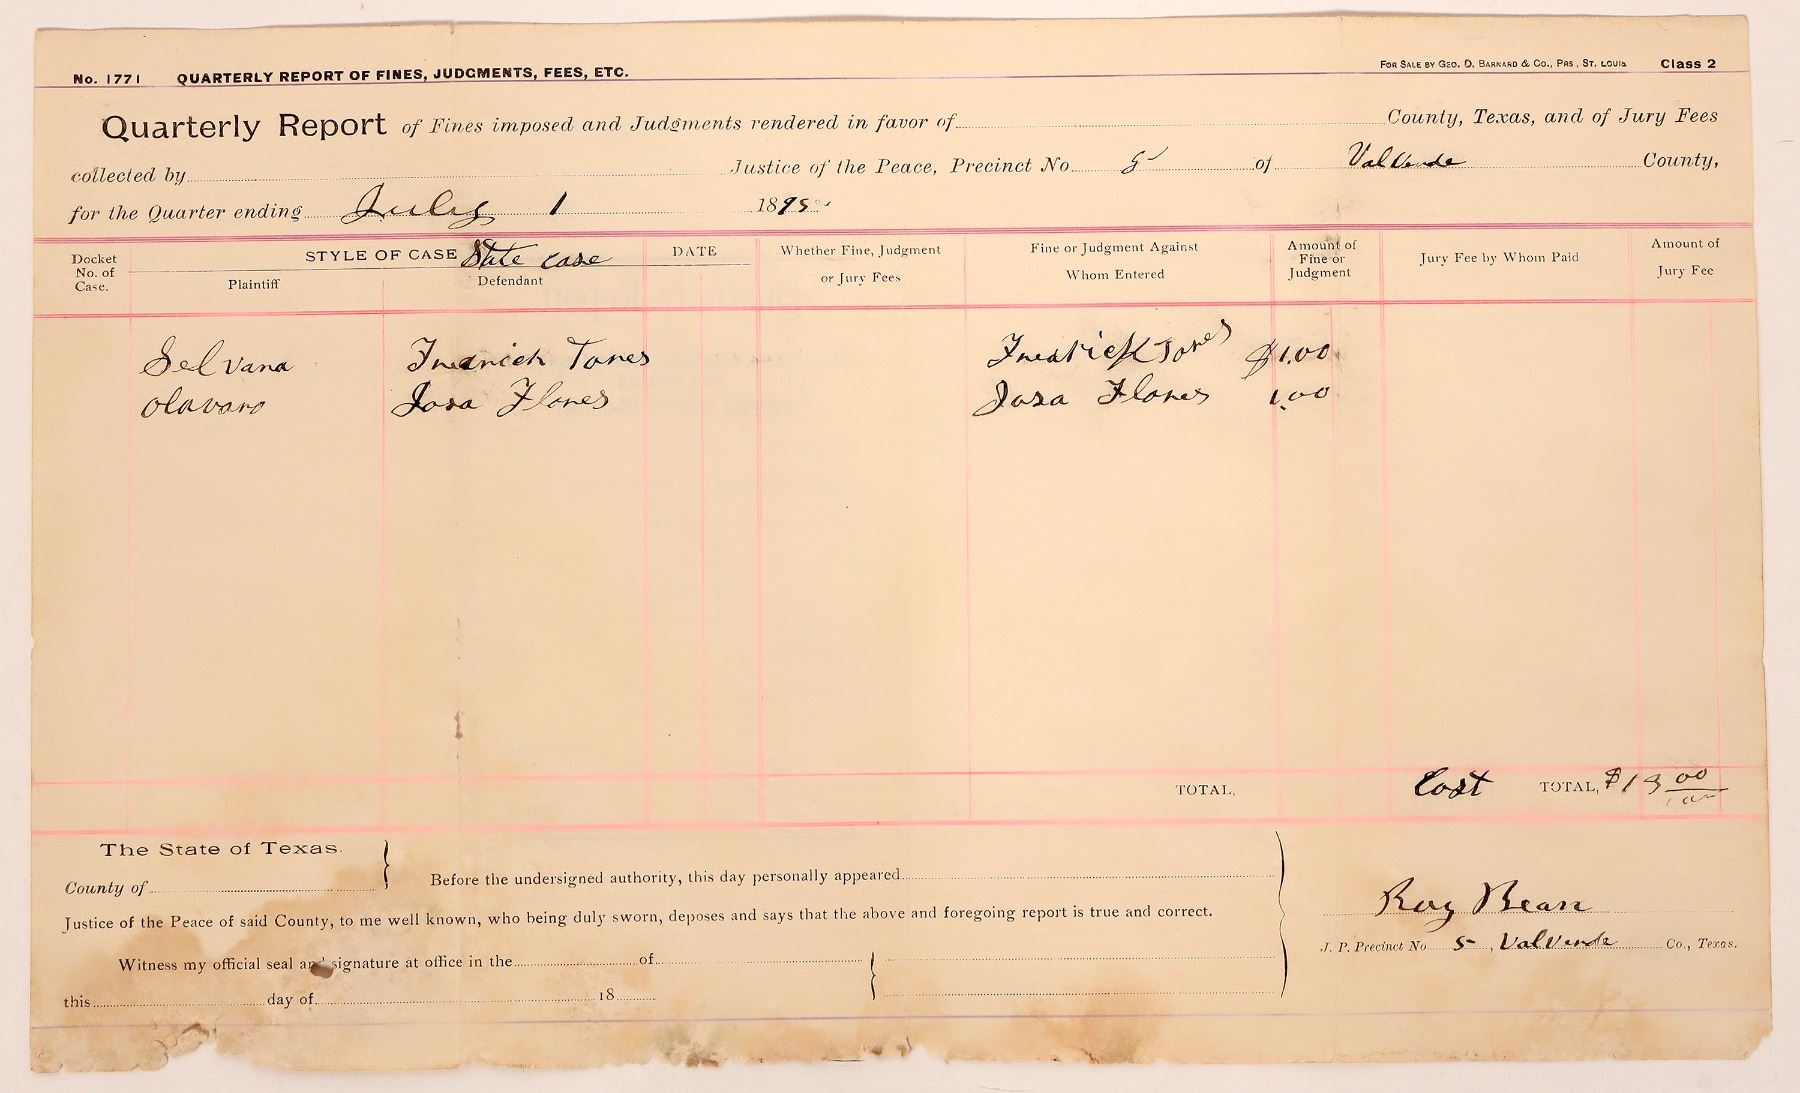 No. 1771 QUARTERLY REPORT OF FINES, JUDGMENTS, FEES, ETC. FOR SALE BY GEO. D. BARNARD & CO., PRS, ST. LOUIS Class 2
Quarterly Report of Fines imposed and Judgments rendered in favor of County, Texas, and of Jury Fees
collected by Justice of the Peace, Precinct No 5 of Val Verde County,
for the Quarter ending July 1 1895
Docket No. of Case. STYLE OF CASE State case DATE Whether Fine, Judgment or Jury Fees Fine or Judgment Against Whom Entered Amount of Fine or Judgment Jury Fee by Whom Paid Amount of Jury Fee
Plaintiff Defendant
Selvana Fredrick Tores Fredrick Tores $1.00
olavaro Josa Flores Josa Flores 1.00
TOTAL, Cost TOTAL, $13 00
The State of Texas
County of Before the undersigned authority, this day personally appeared
Justice of the Peace of said County, to me well known, who being duly sworn, deposes and says that the above and foregoing report is true and correct.
Roy Bean
J. P. Precinct No 5, Val Verde Co., Texas.
Witness my official seal and signature at office in the of
this day of 18